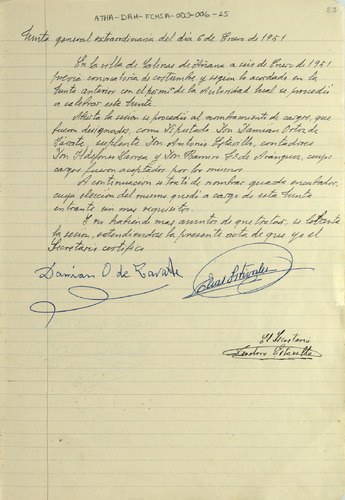 ATHA-DAH-FCHSA-003-006-25
23
Junta general extraordinaria del dia 6 de Enero de 1951
En la villa de Salinas de Añana a seis de Enero de 1951
previa convocatoria de costumbre y segun lo acordado en la
Junta anterior con el permiso de la Autoridad local se procedió
a celebrar esta Junta.
Abierta la sesion se procedió al nombramiento de cargos, que
fueron designados, como Diputado Don Damian Ortiz de
Zárate, suplente Don Antonio Estavillo, contadores
Don Ildefonso Larrea y Don Ramiro Fz de Aránguiz, cuyos
cargos fueron aceptados por los mismos.
A continuacion se trató de nombrar guarda
cuya eleccion del mismo quedó a cargo de esta Junta
entrante sin mas requisitos.
Y no habiendo mas asuntos de que tratar, se levantó
la sesion, extendiendose la presente acta de que yo el
Secretario certifico
Damian O de Zarate
El Secretario
Estavillo